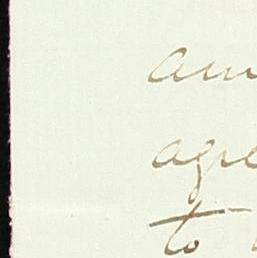 am
agre
to